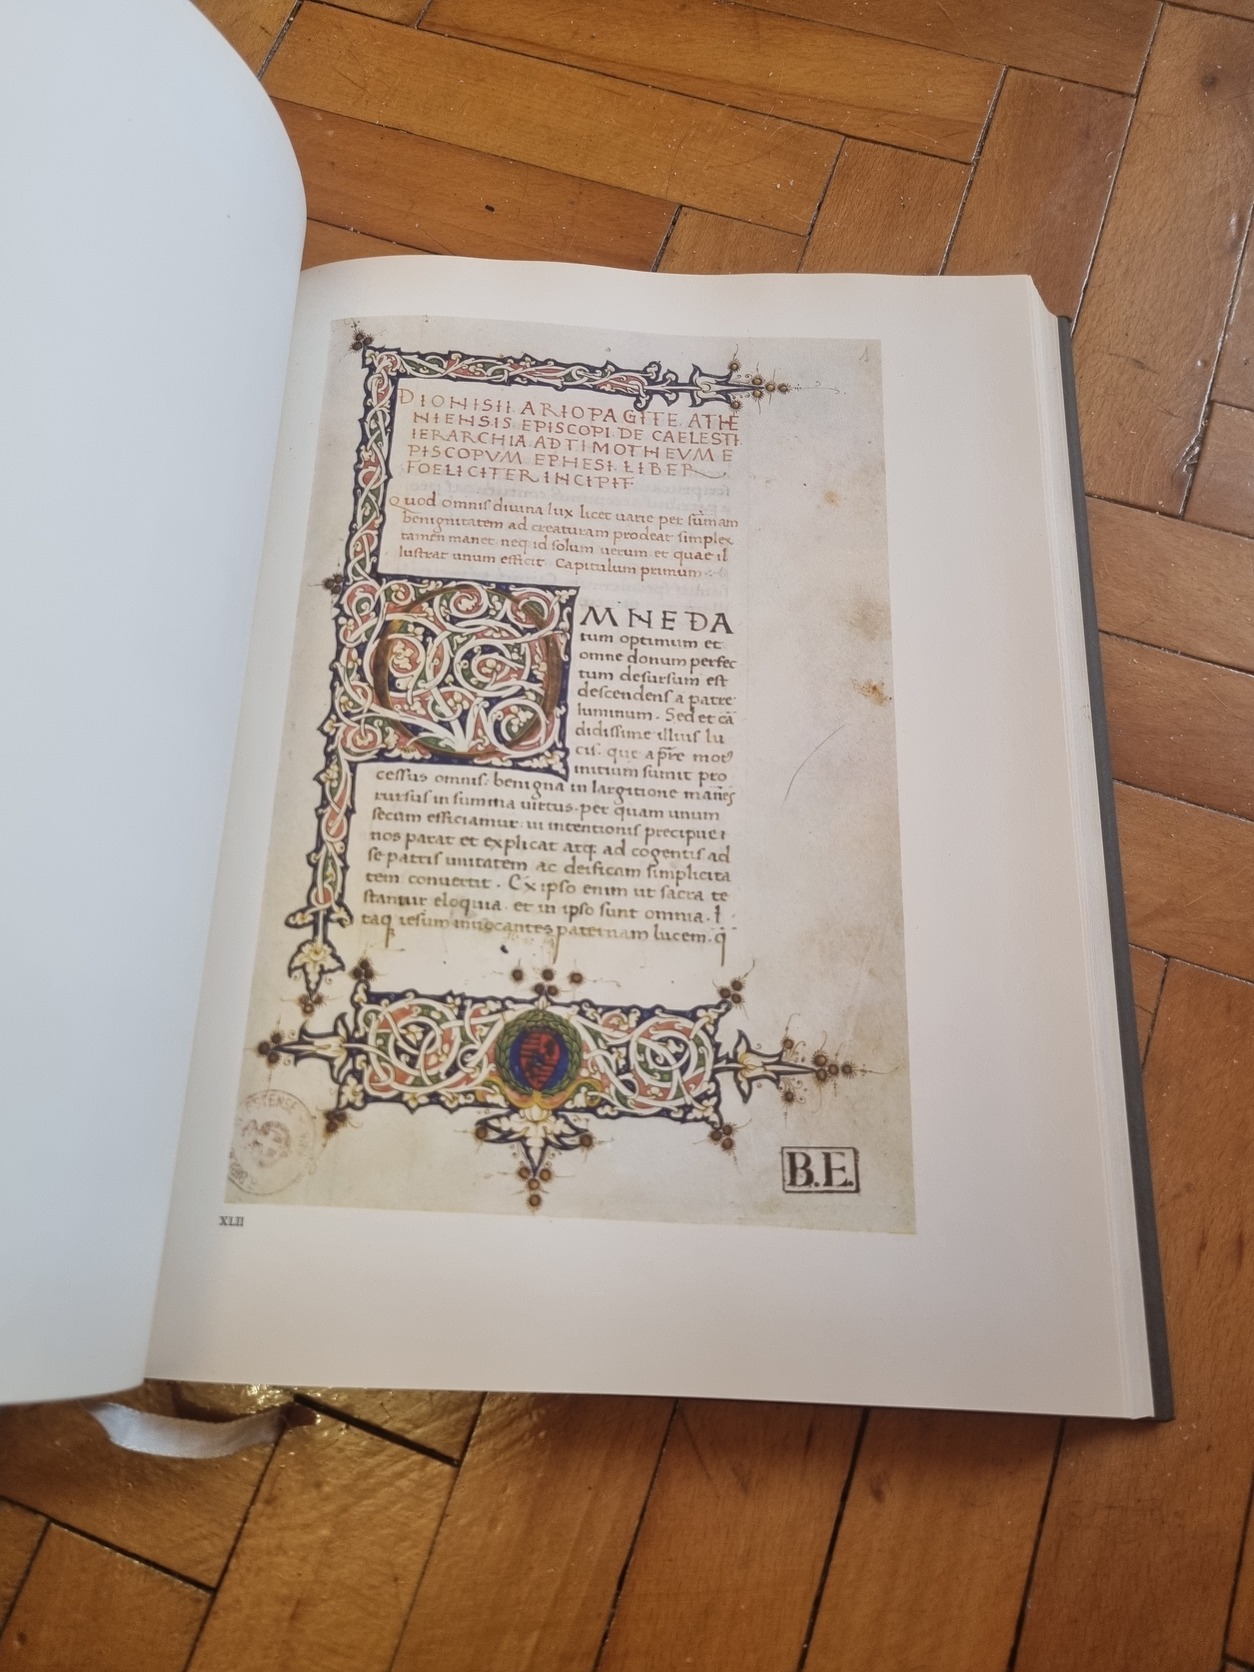 DIONISII ARIOPAGITE ATHE
NIENSIS EPISCOPI DE CAELESTI
IERARCHIA AD TIMOTHEVM E
PISCOPVM EPHESI LIBER
FOELICITER INCIPIT
Quod omnis diuina lux licet uarie per sūmam
benignitatem ad creaturam prodeat simplex
tamen manet neq id solum uerum et quae il
lustrat unum efficit Capitulum primum
OMNE DA
tum optimum et
omne donum perfec
tum desursum est
descendens a patre
luminum. Sed et cā
didissime illius lu
cis. que a pr̄e mot9
initium sumit pro
cessus omnis. benigna in largitione manēs
rursus in summa uirtus. per quam unum
secum efficiamur. ui intentionis precipue
nos parat et explicat atq; ad cogentis ad
se patris unitatem ac deificam simplicita
tem conuertit. Ex ipso enim ut sacra te
stantur eloquia. et in ipso sunt omnia. I
taq iesum inuocantes paternam lucem. q̄
B.E.
XLII